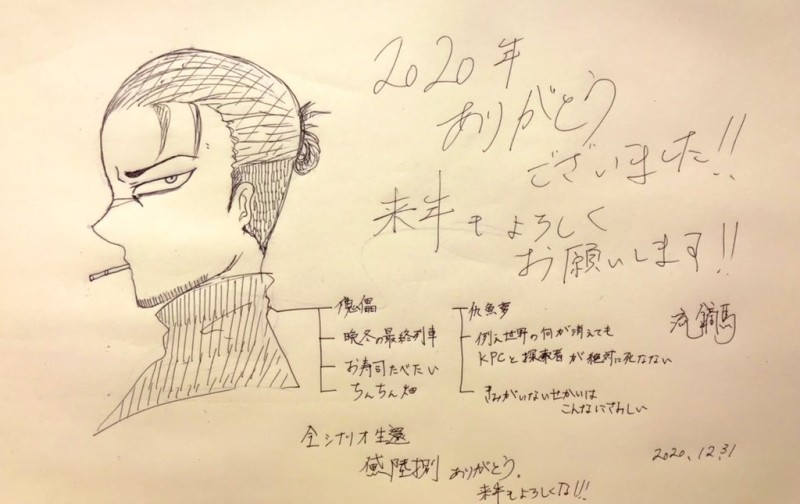 2020年
ありがとう
ございました!!
来年もよろしく
お願いします!!
傀儡
晩冬の最終列車
お寿司たべたい
ちんちん畑
仇魚夢
例え世界の何が消えても
KPCと探索者が絶対に死なない
きみがいないせかいは
こんなにさわしい
流鏑馬
全シナリオ生還
陸捌 ありがとう。
来年もよろしくな!!!
2020.12.31